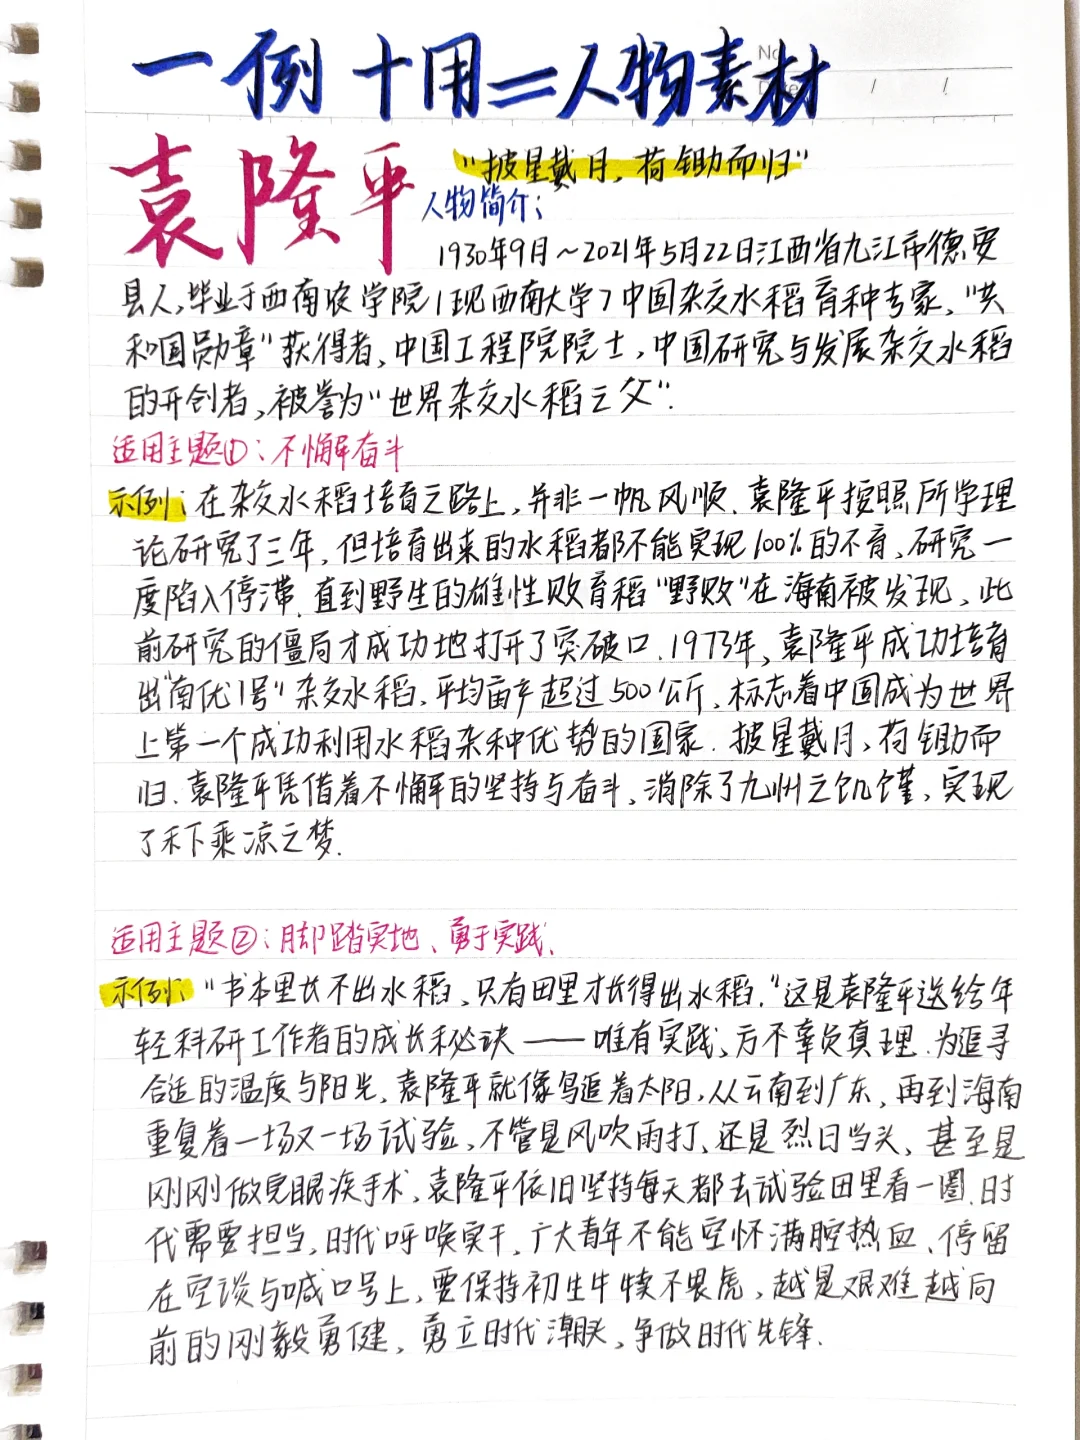 一例十用=人物素材
No
Date / /
袁隆平
"披星戴月,荷锄而归"
人物简介:
1930年9月~2021年5月22日江西省九江市德安
县人,毕业于西南农学院(现西南大学)中国杂交水稻育种专家,"共
和国勋章"获得者,中国工程院院士,中国研究与发展杂交水稻
的开创者,被誉为"世界杂交水稻之父".
适用主题①:不懈奋斗
示例:在杂交水稻培育之路上,并非一帆风顺.袁隆平按照所学理
论研究了三年,但培育出来的水稻都不能实现100%的不育、研究一
度陷入停滞.直到野生的雄性败育稻"野败"在海南被发现,此
前研究的僵局才成功地打开了突破口.1973年,袁隆平成功培育
出"南优1号"杂交水稻,平均亩产超过500公斤,标志着中国成为世界
上第一个成功利用水稻杂种优势的国家.披星戴月,荷锄而
归.袁隆平凭借着不懈的坚持与奋斗,消除了九州之饥馑,实现
了禾下乘凉之梦.
适用主题②:脚踏实地、勇于实践.
示例:"书本里长不出水稻,只有田里才长得出水稻."这是袁隆平送给年
轻科研工作者的成长秘诀——唯有实践,方不辜负真理.为追寻
合适的温度与阳光,袁隆平就像鸟追着太阳,从云南到广东,再到海南
重复着一场又一场试验,不管是风吹雨打、还是烈日当头、甚至是
刚刚做完眼疾手术,袁隆平依旧坚持每天都去试验田里看一圈.时
代需要担当,时代呼唤实干,广大青年不能空怀满腔热血、停留
在空谈与喊口号上,要保持初生牛犊不畏虎,越是艰难越向
前的刚毅勇健,勇立时代潮头,争做时代先锋.